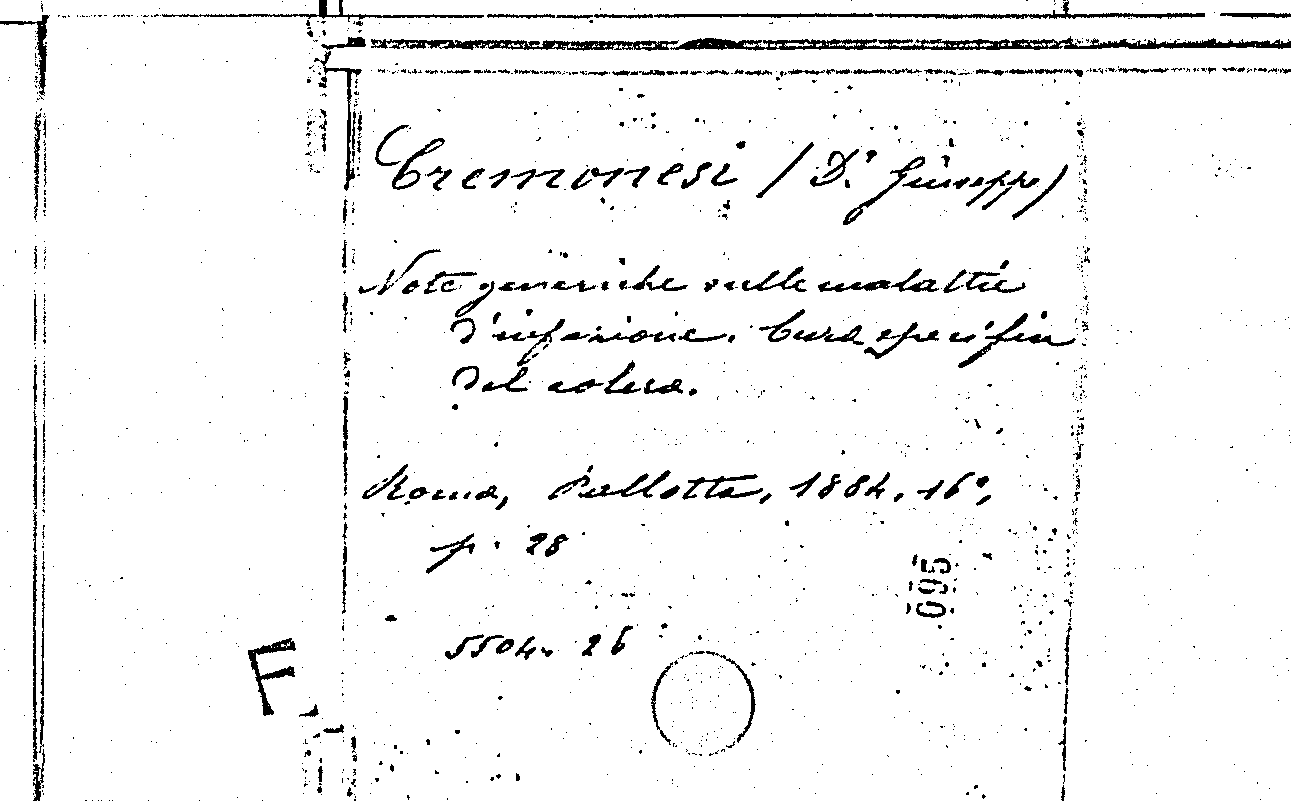 Cremonesi (Dr. Giuseppe)
Note generiche sulle malattie
d'infezione. Cura specifica
del colera.
Roma, Pallotta, 1884, 16°,
p. 28
5504. 26
095
F.